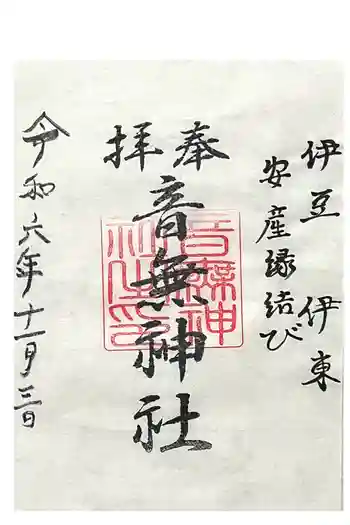 伊豆 伊東
安産縁結び
奉拝
音無神社
令和六年十一月三日